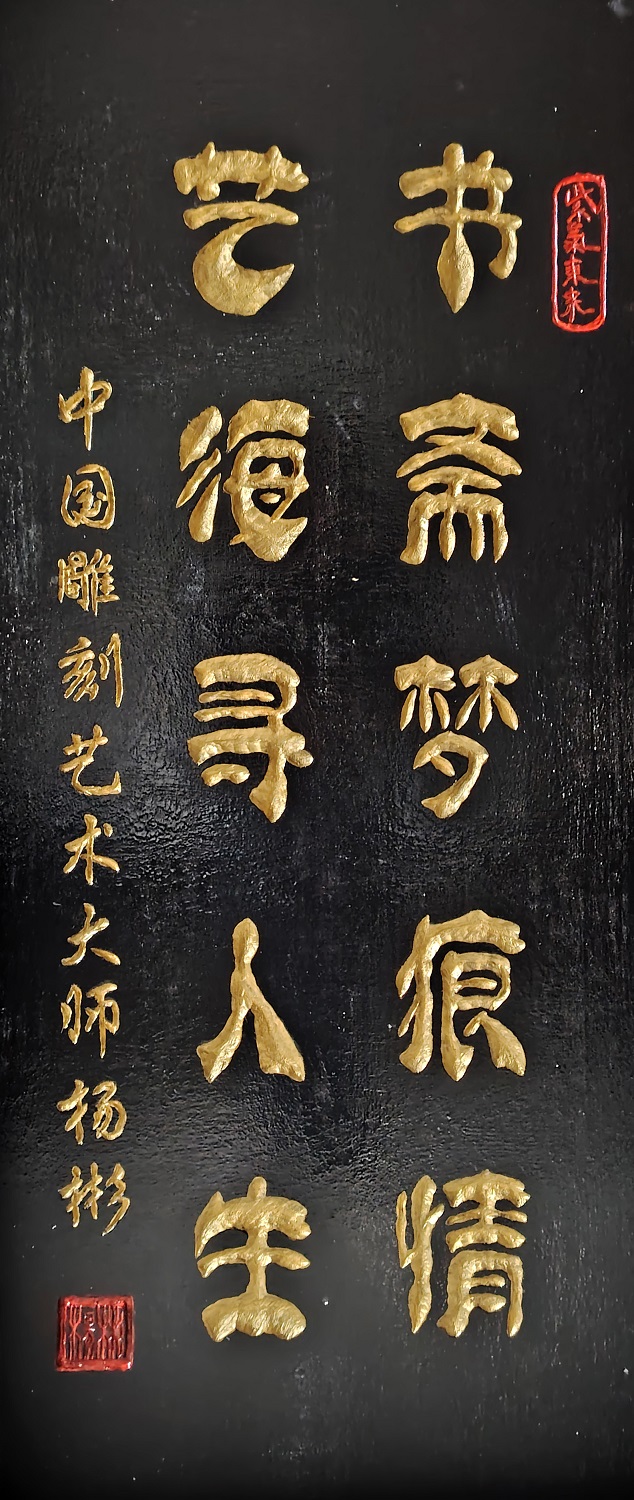 紫氣東来
书斋梦痕情
艺海寻人生
中国雕刻艺术大师杨彬